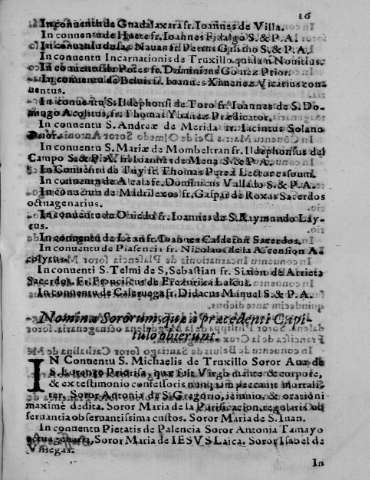 16
In conuentu de Guadalaxara fr. Ioannes de Villa.
In conuentu de Huete fr. Ioannes Fidalgo S. & P. A.
In conuentu de las Nauas fr. Petrus S. & P. A.
In conuentu Incarnationis de Truxillo Nonitius.
In conuentu de fr. Dominicus Gomez Prior.
In conuentu de fr. Ioannes Ximenez Vicarius con-
uentus.
In conuentu S. Ildephonsi de Toro fr. Ioannes de S. Do-
mingo Acolytus, fr. Thomas Prædicator.
In conuentu S. Andreæ de Merida fr. Iacintus Solano
Prior.
In conuentu S. Mariæ de Mombeltran fr. Ildephonsus del
Campo S. & P. A. fr. Ioannes de Mena S. & P. A.
In Conuentu de Tuy fr. Thomas Perez Lector
In conuentu de Alcala fr. Dominicus S. & P. A.
In conuentu de Madrilexos fr. Gaspar de Roxas Sacerdos
octuagenarius.
In conuentu de fr. Ioannes de S. Raymundo Lay-
cus.
In conuentu de fr. Ioannes Calderon Sacerdos.
In conuentu de Plasencia fr. Nicolaus de la Ascension A-
colytus.
In conuenti S. Telmi de S. Sebastian fr. Simon de Arrieta
Sacerdos. Fr. Franciscus de Laicus.
In conuentu de Caleruega fr. Didacus Miguel S. & P. A.
Nomina Sororum, quæ à præcedenti Capi-
tulo obierunt.
IN Conuentu S. Michaelis de Truxillo Soror Ana de
S. Priorissa, quæ fuit Virgo mente & corpore,
& ex testimonio confessoris nunquam peccauit mortali-
ter. Soror Antonia de S. Gregorio, ieiunio, & orationi
maxime dedita. Soror Maria de la Purificacion, regularis ob
seruantiæ obseruantissima custos. Soror Maria de S. Iuan.
In conuentu Pietatis de Palencia Soror Antonia Tamayo
Soror Maria de IESVS Laica. Soror Isabel de
Villegas.
In